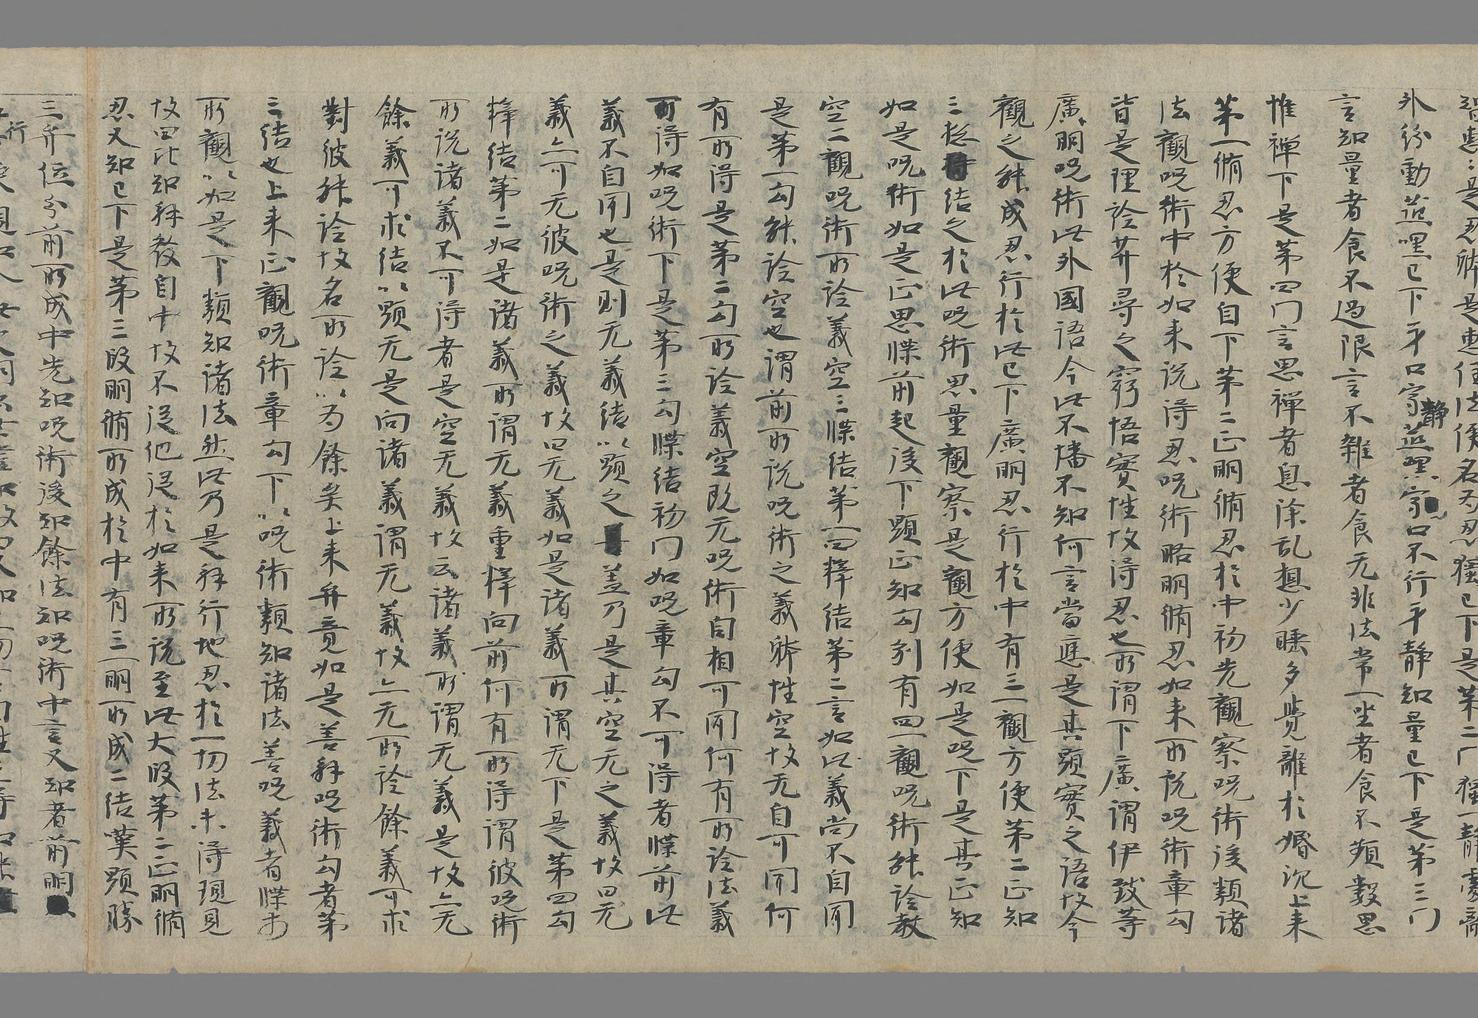 外紛動並嘿已下身口寂靜並嘿寂口不行乎靜知量已下是第三門
言知量者食不過限言不雜者食无非法常一坐者食不頻數思
惟禪下是第四門言思禪者息除乱想少睡多覺離於惛沉上来
第一脩忍方便自下第二正明脩忍於中初先觀察呪術後類諸
法觀呪術中於如来説得忍呪術略明脩忍如来所説呪術章勾
皆是理詮菩尋之窮悟實性故得忍也所謂下廣謂伊䟦等
廣明呪術此外國語今此不播不知何言當應是其顯實之語故今
觀之能成忍行於此已下廣明忍行於中有三一觀方便第二正知
三惣結之於此呪術思量觀察是觀方便如是呪下是其正知
如是呪術如是正思牒前起後下顯正知勾别有四一觀呪術能詮教
空二觀呪術所詮義空三牒結第一四釋結第二言如此義尚不自聞
是第一勾能詮空也謂前所説呪術之義躰性空故无自可聞何
有所得是第二勾所詮義空既无呪術句相可聞何有所詮法義
可得如呪術下是第三勾牒結初門如呪章勾不可得者牒前此
義不自聞也是則无義結以顯之盖乃是其空无之義故曰无
義亦可无彼呪術之義故曰无義如是諸義所謂无下是第四勾
釋結第二如是諸義所謂无義重釋向前何有所得謂彼呪術
所説諸義不可得者是空无義故云諸義所謂无義是故亦无
餘義可求結以顯无是向諸義謂无義故亦无所詮餘義可求
對彼能詮故名所詮以为餘矣上来弁竟如是善解呪術勾者第
三結也上来正觀呪術章勾下以呪術類知諸法善呪義者牒前
所觀以如是下類知諸法然此乃是解行地忍於一切法未得現見
故曰比知解教自十故不從他從於如来所説至此大段第二正明脩
忍又知已下是第三段明脩所成於中有三一明所成二結嘆顯勝
三弁位分前所成中先知呪術後知餘法知呪術中言又知者前明